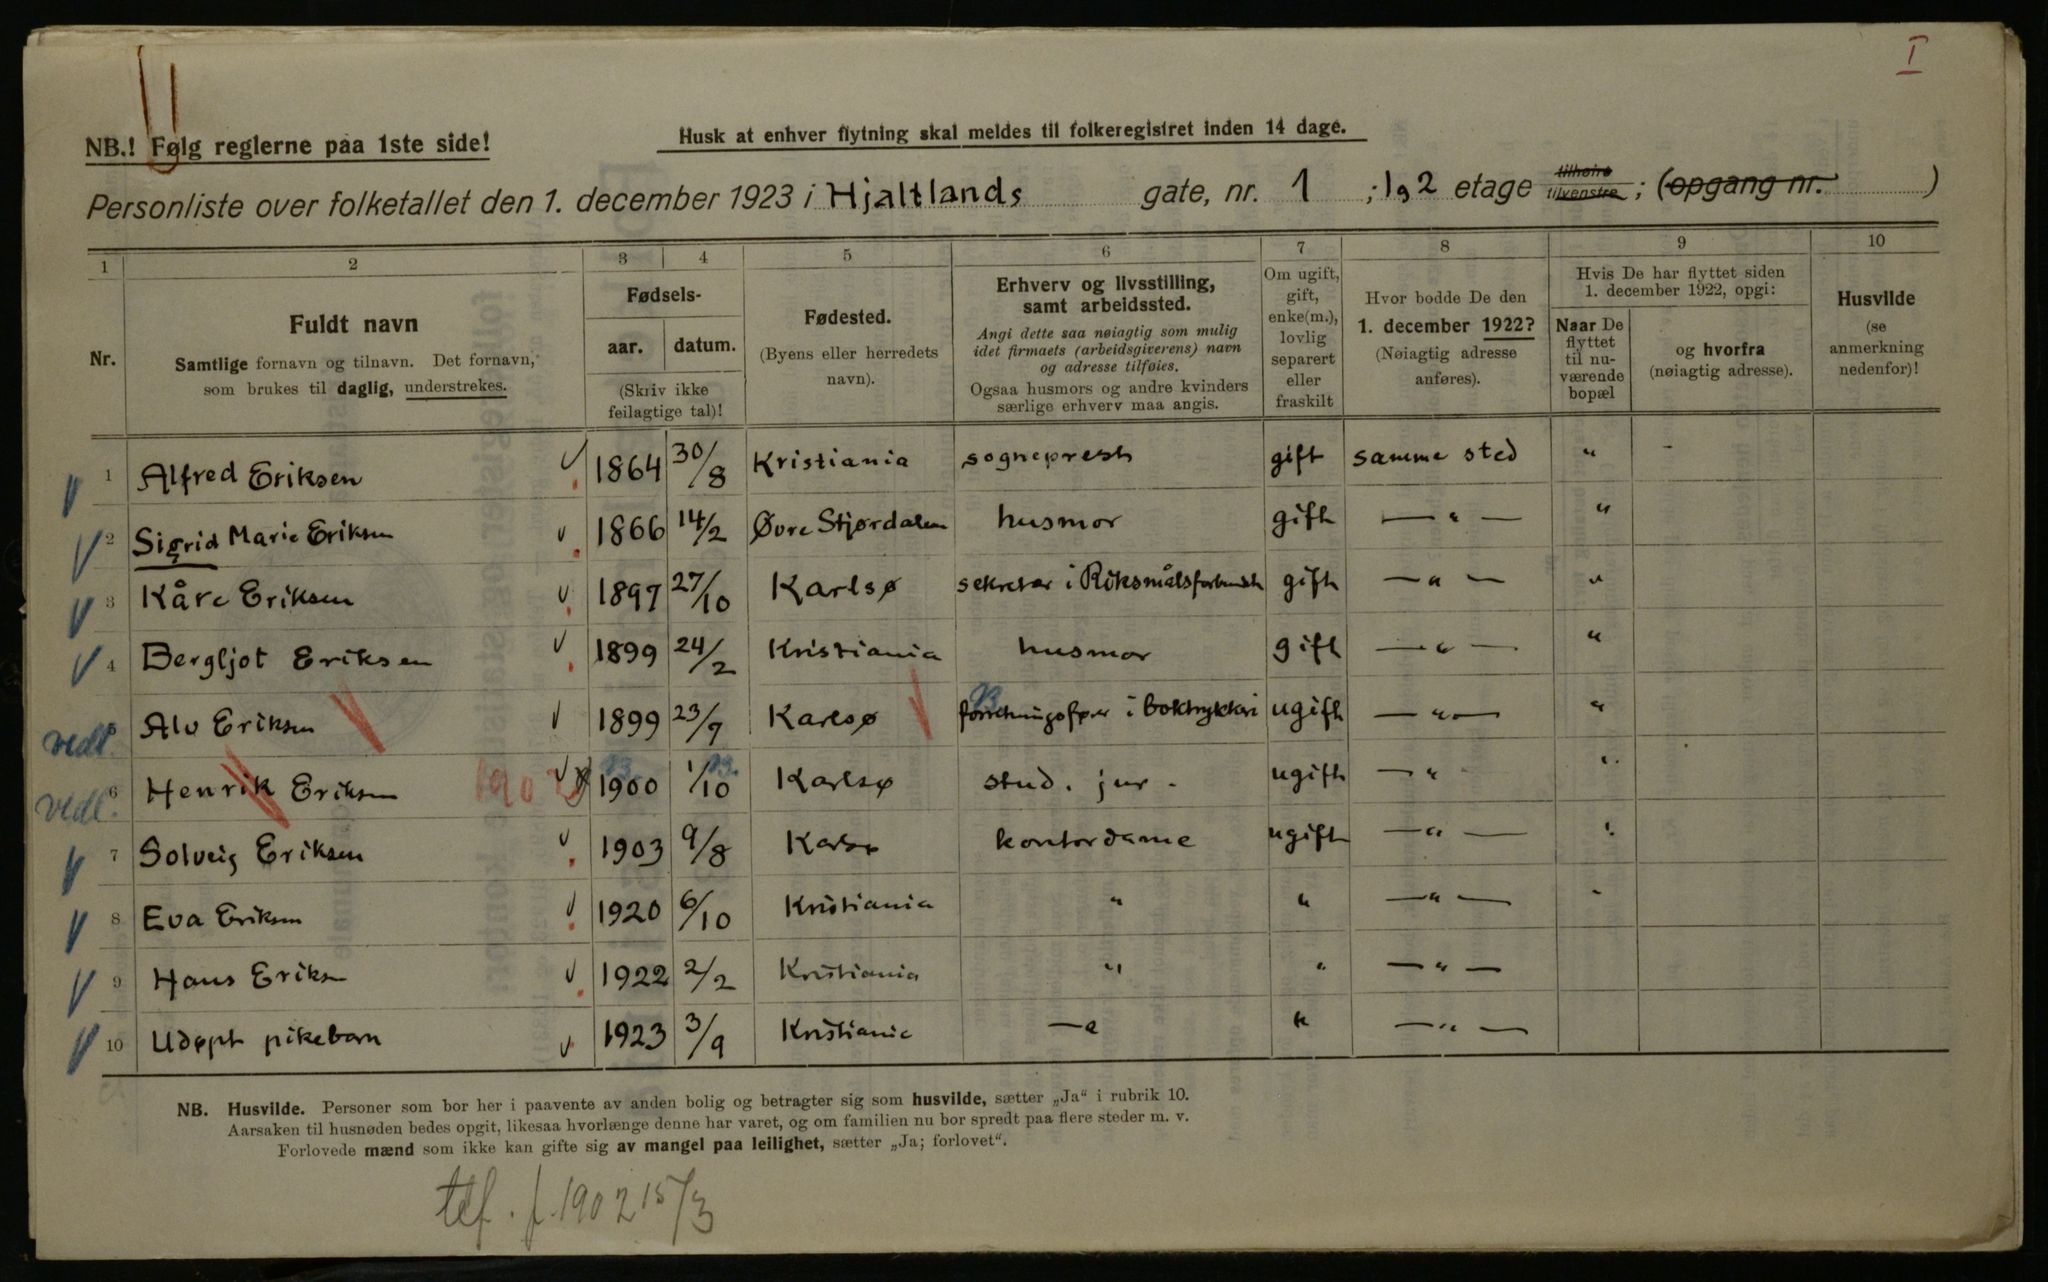 I
NB.! Følg reglerne paa 1ste side!
Husk at enhver flytning skal meldes til folkeregistret inden 14 dage.
Personliste over folketallet den 1. december 1923 i Hjaltlands gate, nr. 1 ; 1 og 2 etage tilhøire tilvenstre ; (opgang nr. )
1 2 3 4 5 6 7 8 9 10
Nr.
Fuldt navn
Samtlige fornavn og tilnavn. Det fornavn,
som brukes til daglig, understrekes.
Fødsels-
aar. datum.
(Skriv ikke
feilagtige tal)!
Fødested.
(Byens eller herredets
navn).
Erhverv og livsstilling,
samt arbeidssted.
Angi dette saa nøiagtig som mulig
idet firmaets (arbeidsgiverens) navn
og adresse tilføies.
Ogsaa husmors og andre kvinders
særlige erhverv maa angis.
Om ugift,
gift,
enke(m.),
lovlig
separert
eller
fraskilt
Hvor bodde De den
1. december 1922?
(Nøiagtig adresse
anføres).
Hvis De har flyttet siden
1. december 1922, opgi:
Naar De
flyttet
til nu-
værende
bopæl
og hvorfra
(nøiagtig adresse).
Husvilde
(se
anmerkning
nedenfor)!
1 Alfred Eriksen 1864 30/8 Kristiania sogneprest gift samme sted " -
2 Sigrid Marie Eriksen 1866 14/2 Øvre Stjørdalen husmor gift — " — "
3 Kåre Eriksen 1897 27/10 Karlsø sekretær i Riksmålsforbundet gift — " — "
4 Bergljot Eriksen 1899 24/2 Kristiania husmor gift — " — "
vedl. Alv Eriksen 1899 23/9 Karlsø forretningsfører i boktrykkeri ugift — " — "
vedl. 6 Henrik Eriksen 1902 1900 1/10 Karlsø stud. jur. ugift — " "
7 Solveig Eriksen 1903 9/8 Karlsø kontordame ugift — " — "
8 Eva Eriksen 1920 6/10 Kristiania " " — " — "
9 Hans Eriksen 1922 2/2 Kristiania " " — " —
10 Udøpt pikebarn 1923 3/9 Kristiania — " " — " —
NB. Husvilde. Personer som bor her i paavente av anden bolig og betragter sig som husvilde, sætter „Ja“ i rubrik 10.
Aarsaken til husnøden bedes opgit, likesaa hvorlænge denne har varet, og om familien nu bor spredt paa flere steder m. v.
Forlovede mænd som ikke kan gifte sig av mangel paa leilighet, sætter „Ja; forlovet“.
tlf. f. 1902 15/3